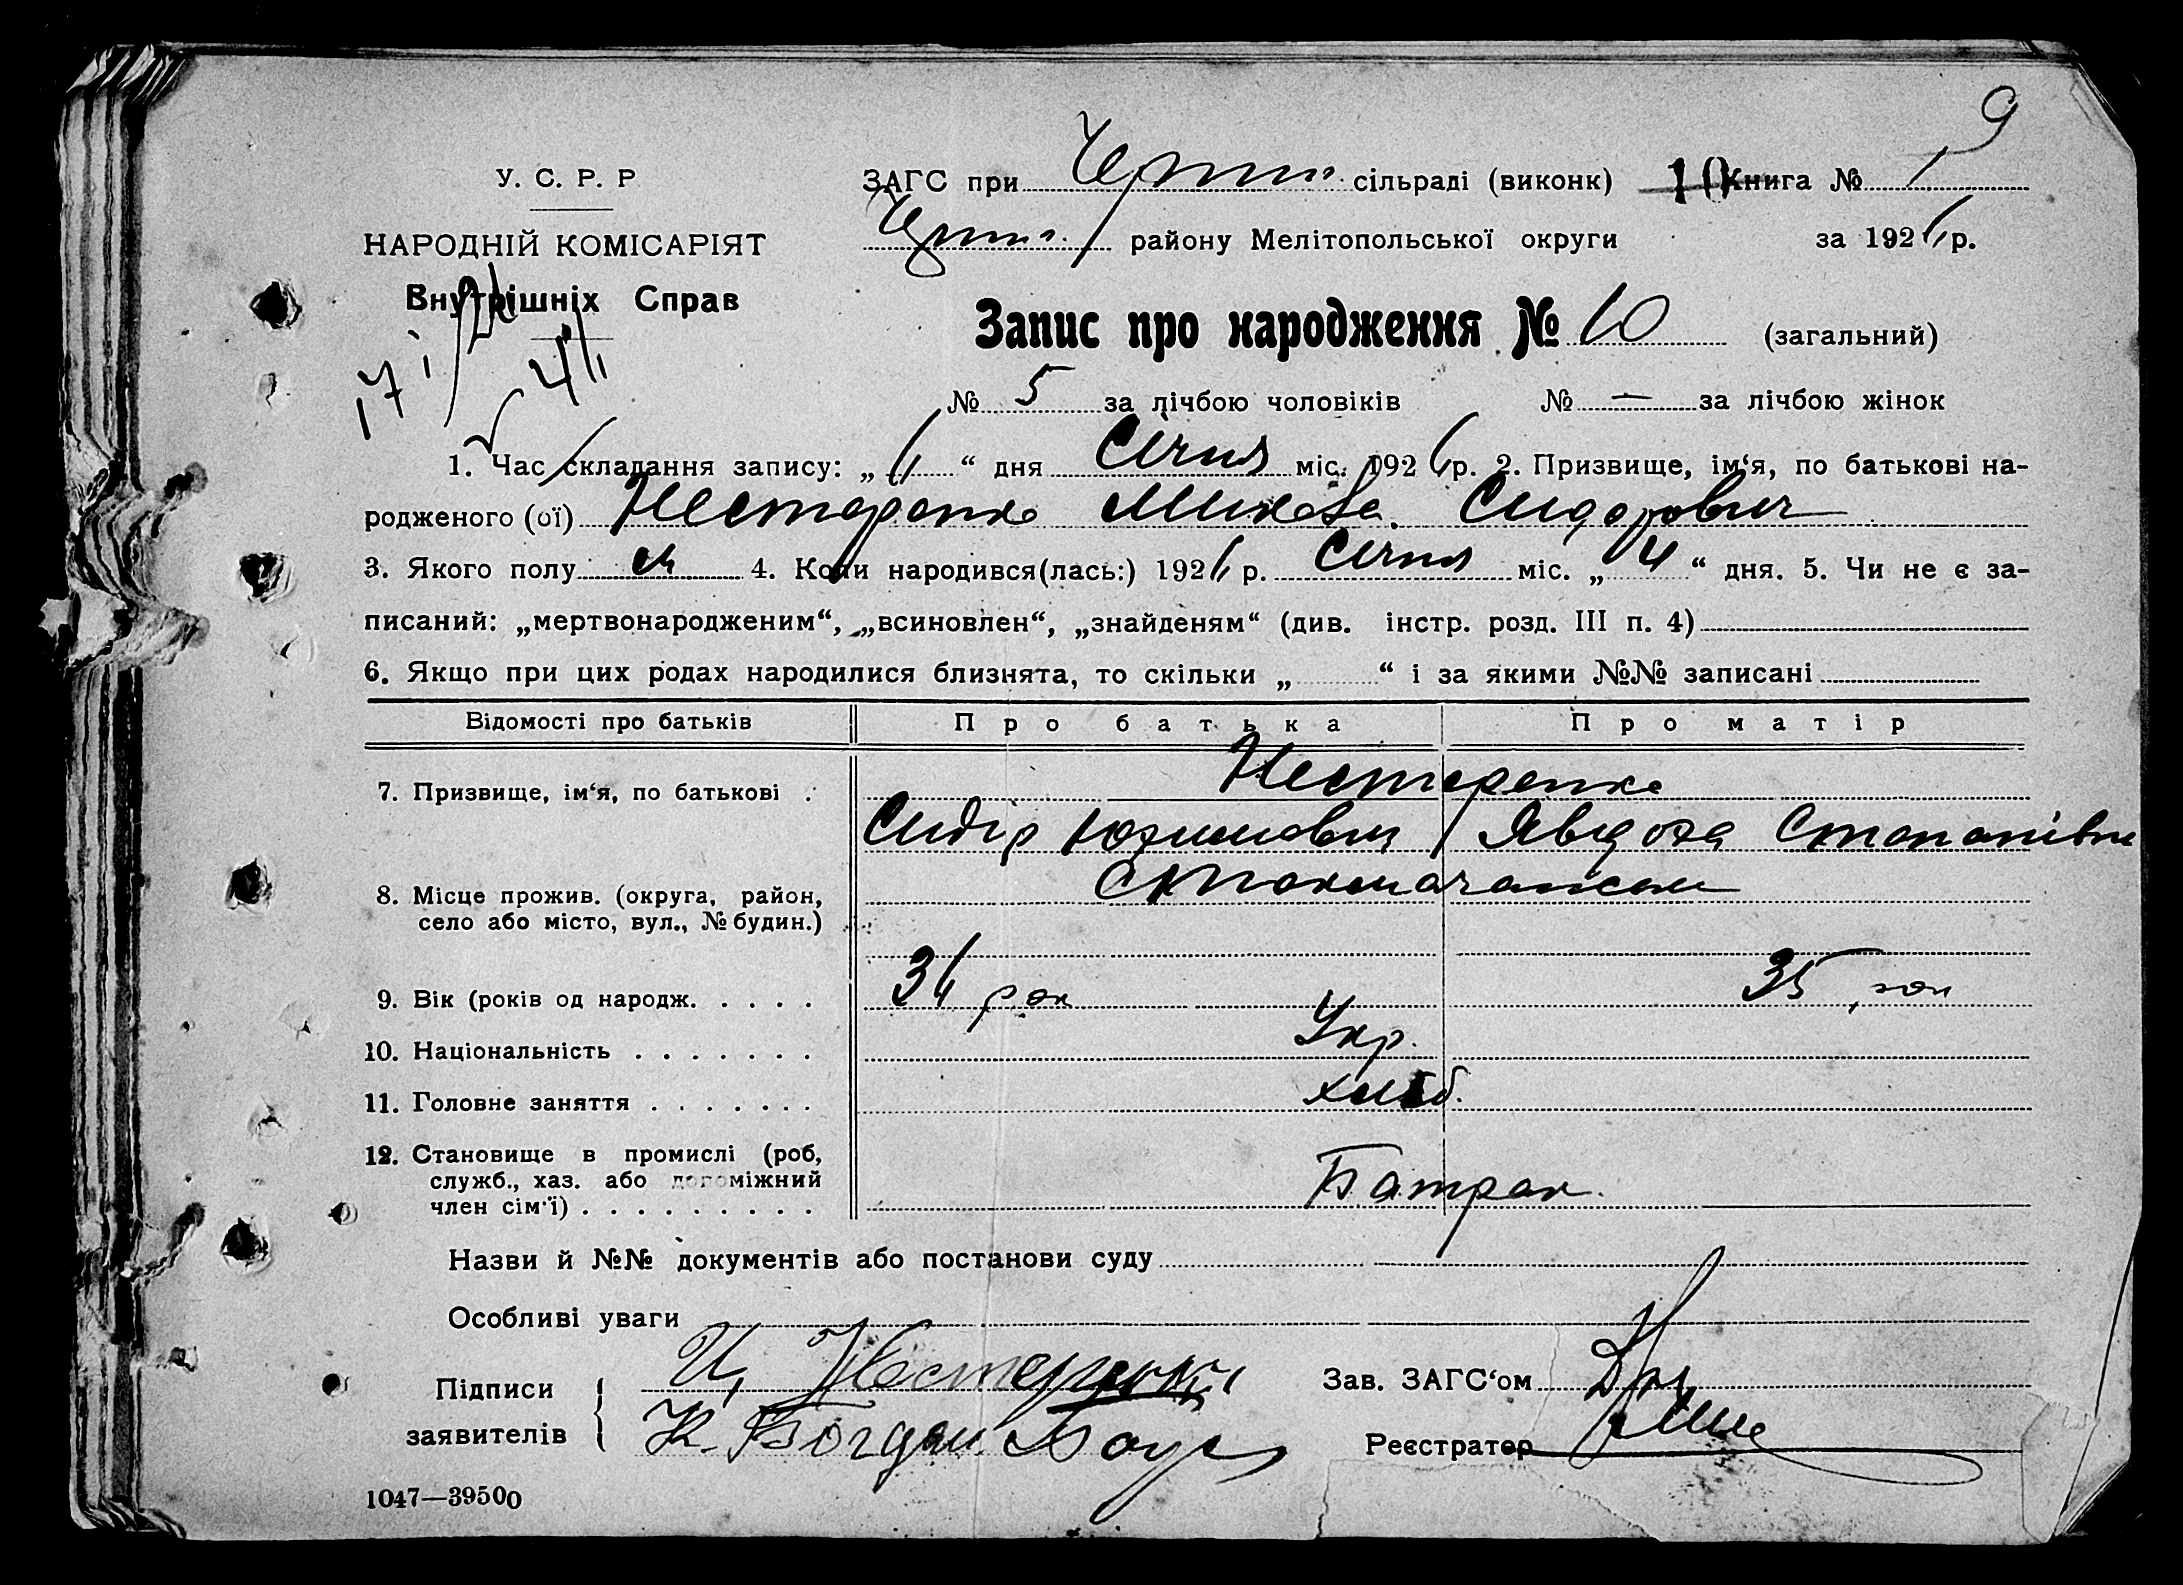 9
У. С. Р. Р
ЗАГС при сільраді (виконк) 10 Книга № 1
НАРОДНІЙ КОМІСАРІЯТ
району Мелітопольської округи за 1926 р.
Внутрішніх Справ
Запис про народження № 10 (загальний)
17 4
№ 5 за лічбою чоловіків № — за лічбою жінок
1. Час складання запису: „ “ дня Січня міс. 1926 р. 2. Призвище, ім‘я, по батькові на-
родженого (ої) Нестеренко Микола Сидорович
3. Якого полу м 4. Коли народився(лась:) 1926 р. Січня міс. „ 4 “ дня. 5. Чи не є за-
писаний: „мертвонародженим“, „всиновлен“, „знайденям“ (див. інстр. розд. III п. 4)
6. Якщо при цих родах народилися близнята, то скільки „ “ і за якими №№ записані
Відомості про батьків Про батька Про матір
7. Призвище, ім‘я, по батькові Нестеренко
Сидір Юхимович Явдоха Степанівна
8. Місце прожив. (округа, район,
село або місто, вул., № будин.)
9. Вік (років од народж. 36 рок 35 рок
10. Національність Укр.
11. Головне заняття хліб.
12. Становище в промислі (роб,
служб., хаз. або допоміжний
член сім'ї) Батрак.
Назви й №№ документів або постанови суду
Особливі уваги
Підписи Нестеренко Зав. ЗАГС‘ом
заявителів К. Богдан Реєстратор
1047—39500